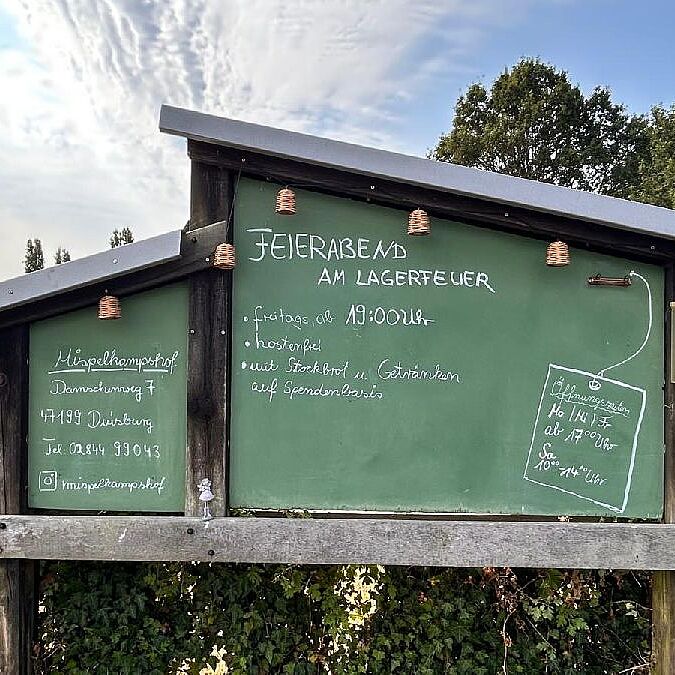 Mispelkampshof
Damschenweg 7
47199 Duisburg
Tel. 02844 99043
mispelkampshof
FEIERABEND
AM LAGERFEUER
• freitags ab 19:00 Uhr
• kostenfrei
• mit Stockbrot u. Getränken
auf Spendenbasis
Öffnungszeiten
Mo | Mi | Fr
ab 17⁰⁰ Uhr
Sa
10⁰⁰-14⁰⁰ Uhr